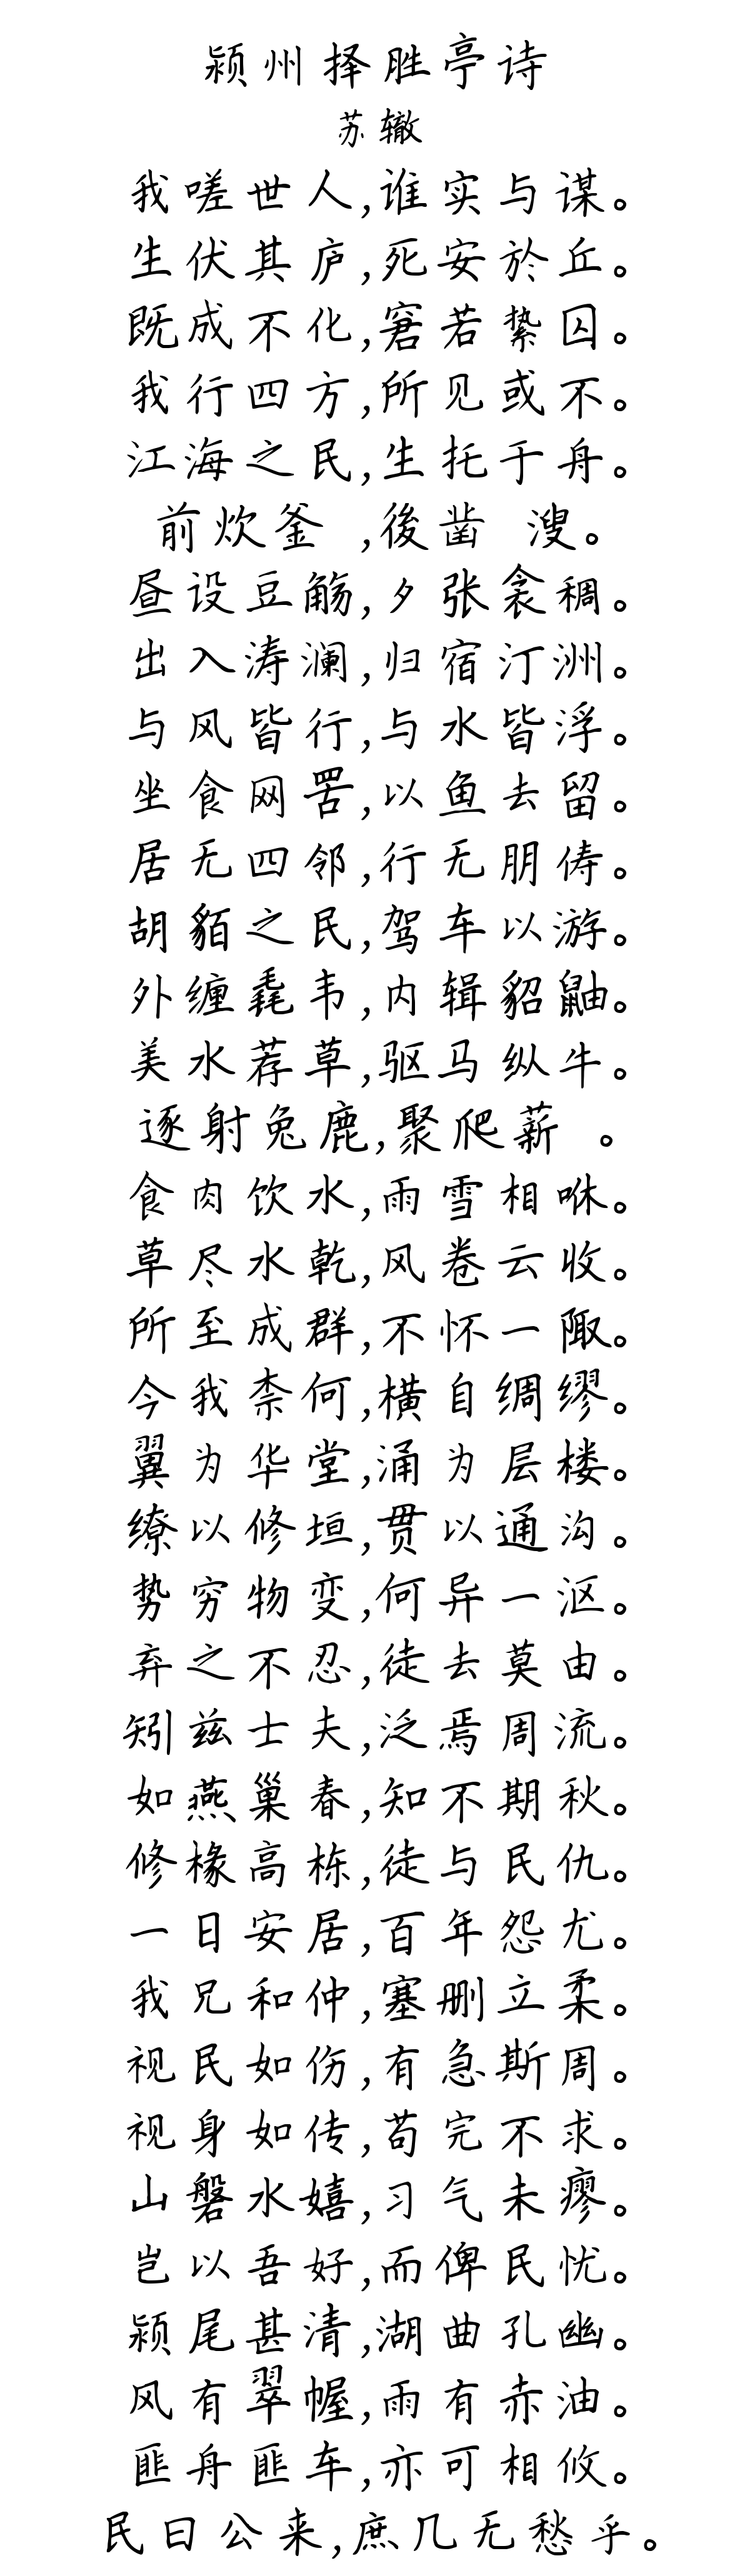 颍州择胜亭诗
苏辙
我嗟世人,谁实与谋。
生伏其庐,死安於丘。
既成不化,窘若絷囚。
我行四方,所见或不。
江海之民,生托于舟。
前炊釜 ,後凿 溲。
昼设豆觞,夕张衾稠。
出入涛澜,归宿汀洲。
与风皆行,与水皆浮。
坐食网罟,以鱼去留。
居无四邻,行无朋俦。
胡貊之民,驾车以游。
外缠毳韦,内辑貂鼬。
美水荐草,驱马纵牛。
逐射兔鹿,聚爬薪 。
食肉饮水,雨雪相咻。
草尽水乾,风卷云收。
所至成群,不怀一陬。
今我柰何,横自绸缪。
翼为华堂,涌为层楼。
缭以修垣,贯以通沟。
势穷物变,何异一沤。
弃之不忍,徒去莫由。
矧兹士夫,泛焉周流。
如燕巢春,知不期秋。
修椽高栋,徒与民仇。
一日安居,百年怨尤。
我兄和仲,塞删立柔。
视民如伤,有急斯周。
视身如传,苟完不求。
山磐水嬉,习气未瘳。
岂以吾好,而俾民忧。
颍尾甚清,湖曲孔幽。
风有翠幄,雨有赤油。
匪舟匪车,亦可相攸。
民曰公来,庶几无愁乎。